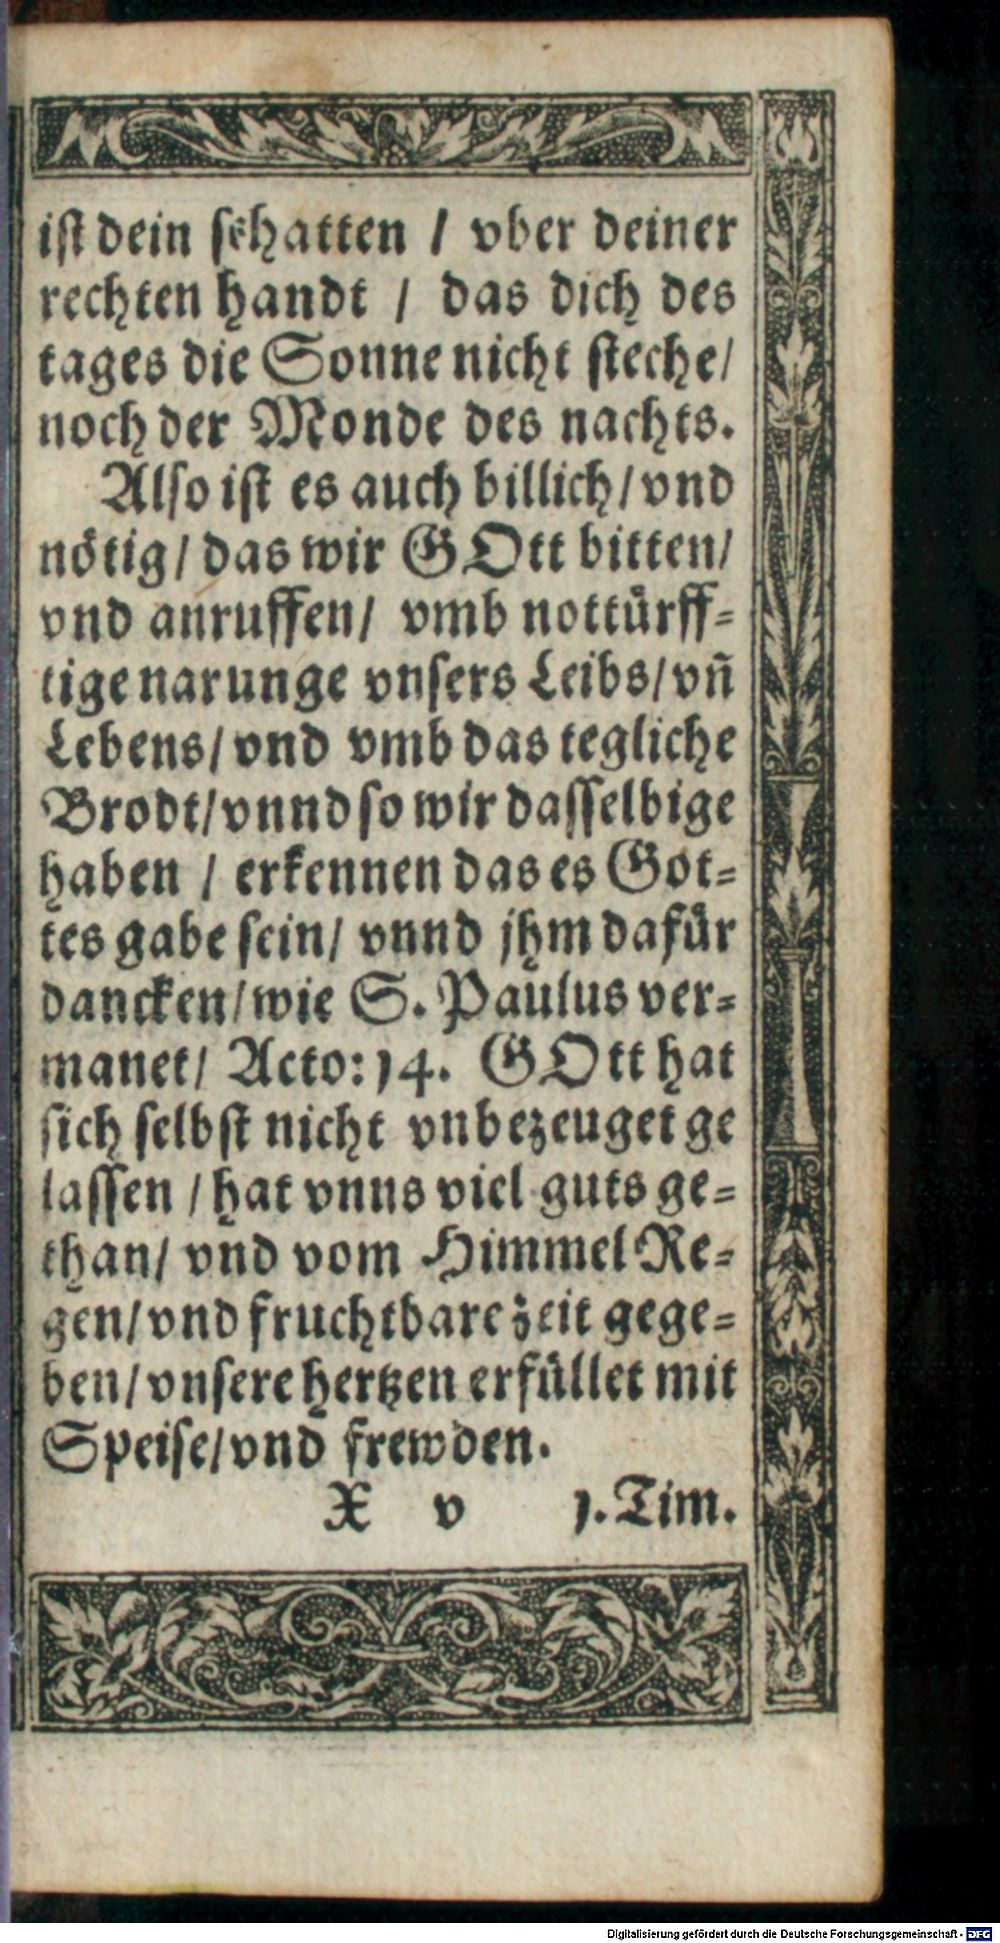 ist dein schatten / vber deiner
rechten handt / das dich des
tages die Sonne nicht steche/
noch der Monde des nachts.
Also ist es auch billich/ vnd
nötig/ das wir GOtt bitten/
vnd anruffen/ vmb nottürff-
tige narunge vnsers Leibs/ vñ
Lebens/ vnd vmb das tegliche
Brodt/ vnnd so wir dasselbige
haben / erkennen das es Got-
tes gabe sein/ vnnd jhm dafür
dancken/ wie S. Paulus ver-
manet/ Acto: 14. GOtt hat
sich selbst nicht vnbezeuget ge
lassen / hat vnns viel guts ge-
than/ vnd vom Himmel Re-
gen/ vnd fruchtbare zeit gege-
ben/ vnsere hertzen erfüllet mit
Speise/ vnd frewden.
X v 1. Tim.
Digitalisierung gefördert durch die Deutsche Forschungsgemeinschaft - DFG